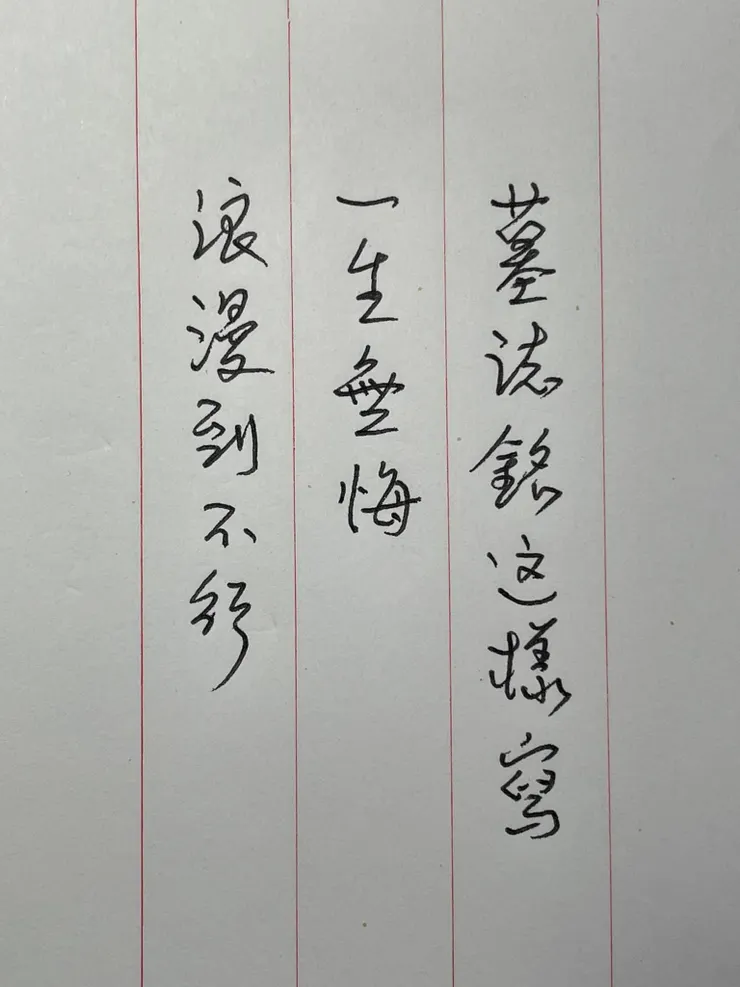 墓誌銘这樣寫
一生無悔
浪漫到不行